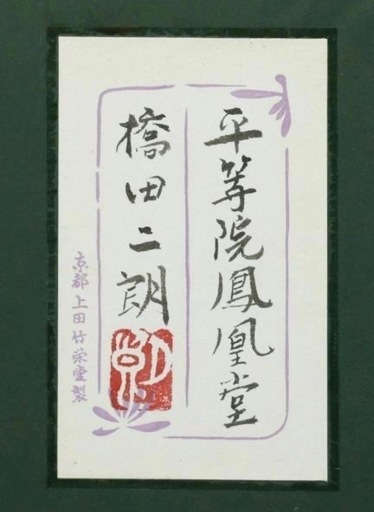 平等院鳳凰堂
橋田二朗
京都上田竹栄堂製